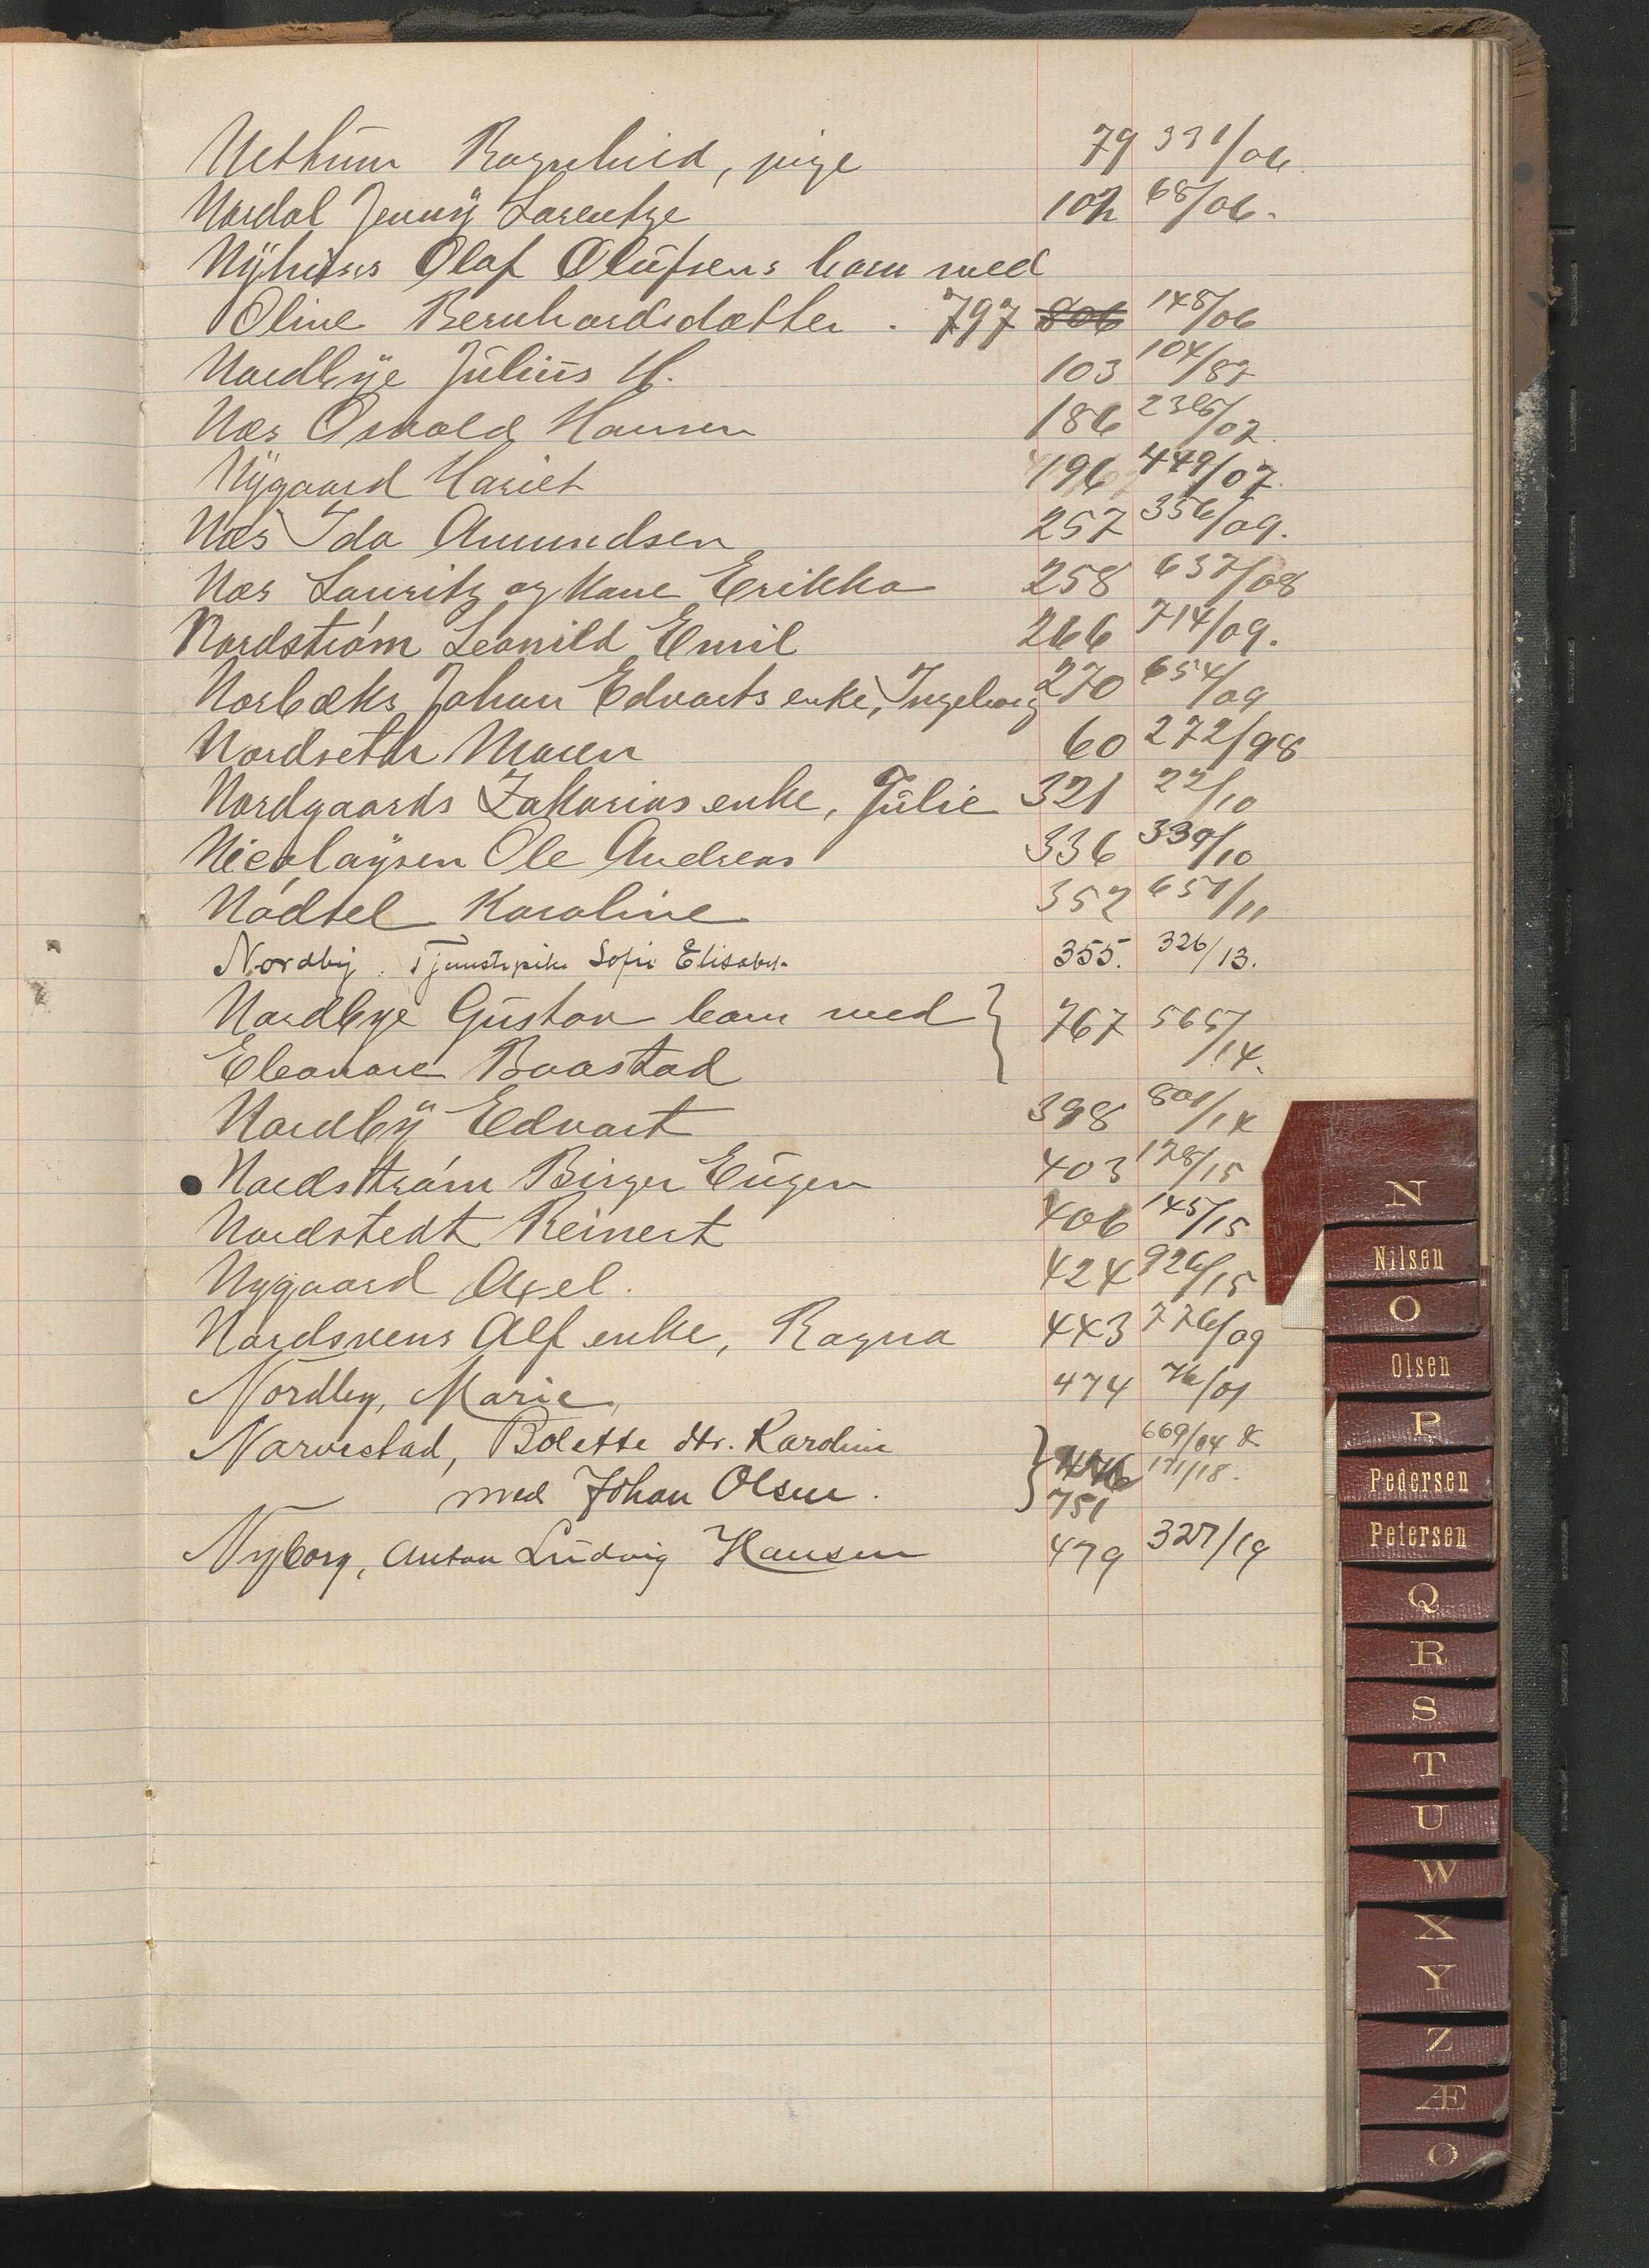 Nethum Ragnhild, pige 79 331/06.
Nordal Jenny Larentze 102 68/06.
Nyhuses Olaf Olufsens barn med
Oline Bernhardsdatter . 797 806 148/06
Nordbye Julius H. 103 104/87
Næs Osvald Hansen 186 235/02.
Nygaard Hariet 196 449/07.
Næs Ida Amundsen 257 356/09.
Næs Lauritz og Kone Erikka 258 637/08
Nordstrøm Leonild Emil 266 714/09.
Norbæks Johan Edvarts enke, Ingeborg 270 654/09
Nordseth Maren 60 272/98
Nordgaards Zakarias enke, Julie 321 22/10
Nicolaysen Ole Andreas 336 339/10
Nødtel Karoline 352 651/11
Nordby. Tjenestepike Sofie Elisabet. 355. 326/13.
Nordbye Gustav barn med } 767 565/14.
Eleonore Baastad
Nordby Edvart 398 801/14
Nordstrøm Birger Eugen 403 178/15
Nordstedt Reinert 406 145/15
Nygaard Axel. 424 926/15
Nordsveens Alf enke, Ragna 443 776/09
Nordby, Marie, 474 76/01
Narvestad, Bolette dtr. Karoline } 669/04 &
med Johan Olsen. 751 171/18.
Nyborg, Anton Ludvig Hansen 479 327/19
N
Nilsen
O
Olsen
P
Pedersen
Petersen
Q
R
S
T
U
W
X
Y
Z
Æ
Ø